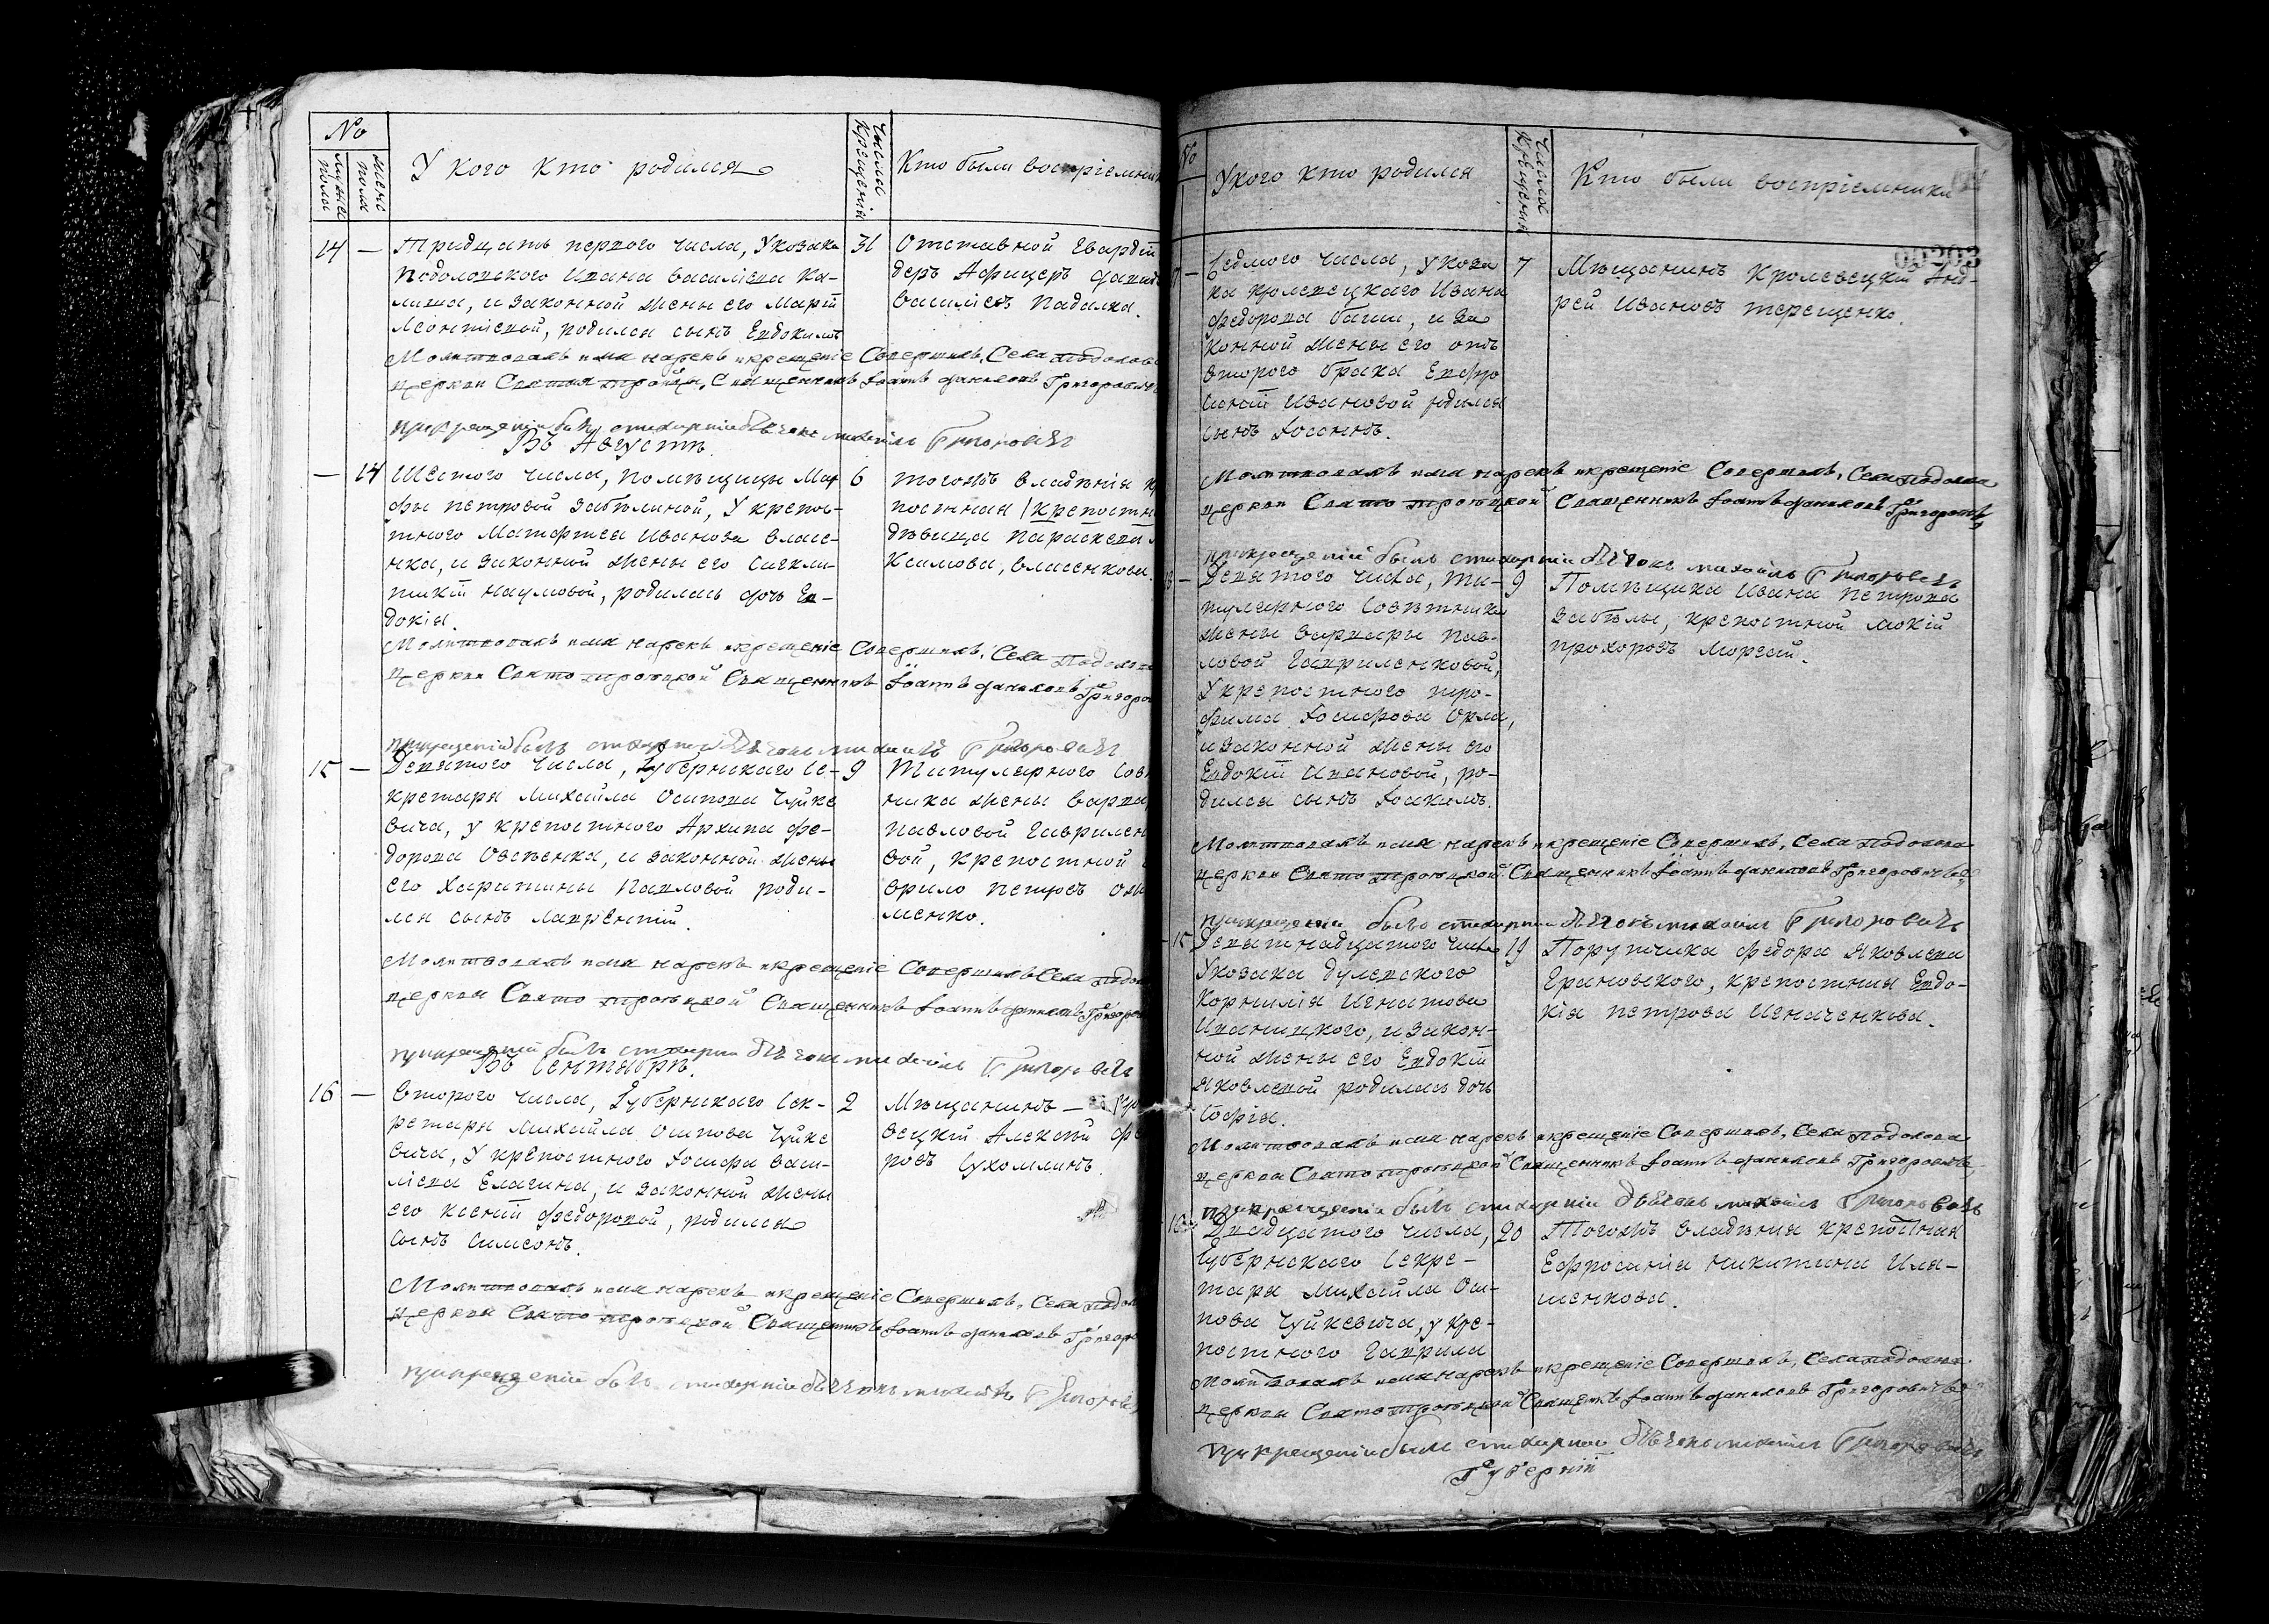 №
мужеска пола
женска пола
У кого кто родился
Число крещенія
Кто были воспріемник
14 — Тридцать перваго числа, У козака
Подоловского Ивана василіева Ка-
лиша, и законной жены его Маріи
Леонтіевой, родился сынъ Евдокимъ
31
Отставной Гвардіи
Афицеръ
василіев Падалка.
Молитвовалъ имя нарекъ и крещеніе Совершилъ, Села Подолов
церкви Святыя тройцы, Священникъ Іоаннъ даниловъ Григорович
при крещеніи былъ стихарній дьячокъ михаилъ Григоровичъ
Въ Августѣ.
— 14 Шестого числа, помѣщицы Мар
фы петровой Забѣлиной, У крепос-
тного Матфиея Иванова Влас-
нка, и законной жены его
наумовой, родилась дочь Ев-
докія.
6
тогожъ владѣнія
постная крепостн
дѣвица параскева
Климова, власенкова.
Молитвовалъ имя нарекъ и крещеніе Совершилъ, Села Подолова
церкви Свято троицкой Священникъ Іоаннъ даниловъ Григоро
при крещеніи былъ стихарній дьячокъ михаилъ Григоровичъ
15 — Девятого числа, Губернскаго Се-
кретаря Михайла Осипова Чуйке
вича, у крепостного Архипа фе-
дорова Овсѣенка, и законной жены
его Харитины Павловой роди-
лся сынъ лаврентій.
9
Титулярного Сов
ника жены Варва
павловой Гаврилен
вой, крепостной
врило петровъ
менко.
Молитвовалъ имя нарекъ и крещеніе Совершилъ Села Подол
церкви Свято троицкой Священникъ Іоаннъ даниловъ Григоро
при крещеніи былъ стихарній дьячокъ михаилъ Григоровичъ
Въ Сентябрѣ.
16 — Второго числа, Губернскаго Сек-
ретаря Михайла Осипова Чуйке
вича, У крепостного Іосифа Васи-
ліева Елагина, и законной жены
его ксеніи федоровой, родился
сынъ Симеонъ.
2
Мѣщанинъ —
вецкій Алексѣй фе
ровъ Сухомлинъ.
Молитвовалъ имя нарекъ и крещеніе Совершилъ, Села Подол
церкви Свято троицкой Священникъ Іоаннъ даниловъ Григоро
при крещеніи былъ стихарній дьячокъ михаилъ Григорови
№
У кого кто родился
Числа Крещенія
Кто были воспріемники
00203
— Седмого числа, у коза
ка кролевецкаго Ивана
федорова баши, и за
конной жены его отъ
второго брака Евфро
синіи Ивановой родился
сынъ Іосифъ.
7
Мѣщанинъ Кролевецкій Анд-
рей Ивановъ терещенко.
Молитвовалъ имя нарекъ и крещеніе Совершилъ, Села Подолова
церкви Свято троицкой Священникъ Іоаннъ даниловъ Григорович
при крещеніи былъ стихарній дьячокъ михайлъ Григоровичъ
— Девятого числа, ти-
тулярного Совѣтника
жены варвары пав-
ловой Гавриленковой,
У крепостного тро-
фима Іосифова Орла,
и законной жены его
Евдокіи Ивановой, ро-
дился сынъ Іоакимъ.
9
Помѣщика Ивана петрова
Забѣлы, крепостной мокій
прохоровъ
Молитвовалъ имя нарекъ и крещеніе Совершилъ, Села Подолова
церкви Свято троицкой Священникъ Іоаннъ даниловъ Григоровичъ
при крещеніи былъ стихарній дьячокъ михаилъ Григоровичъ
15 Девятнадцатого числа
У козака дулевского
Корнилія Игнатова
Иваницкого, и закон-
ной жены его Евдокіи
Яковлевой родилась дочь
Софія.
19
Порутчика федора Яковлева
Грановского, крепостная Евдо-
кія петрова Игнатенкова.
Молитвовалъ имя нарекъ и крещеніе Совершилъ, Села Подолова
церкви Свято троицкой Священникъ Іоаннъ даниловъ Григоровичъ
при крещеніи былъ стихарній дьячокъ михайлъ Григоровичъ
16 Двадцатого числа,
Губернскаго Секре-
таря Михайла Оси-
пова Чуйкевича, у кре-
постного Гаврила
20
Тогожъ владѣнія крепостная
Ефросинія никитина Иля-
шенкова.
Молитвовалъ имя нарекъ и крещеніе Совершилъ, Села Подолова
церкви Свято троицкой Священникъ Іоаннъ даниловъ Григоровичъ
при крещеніи былъ стихарній дьячокъ михаилъ Григоровичъ
Губерніи